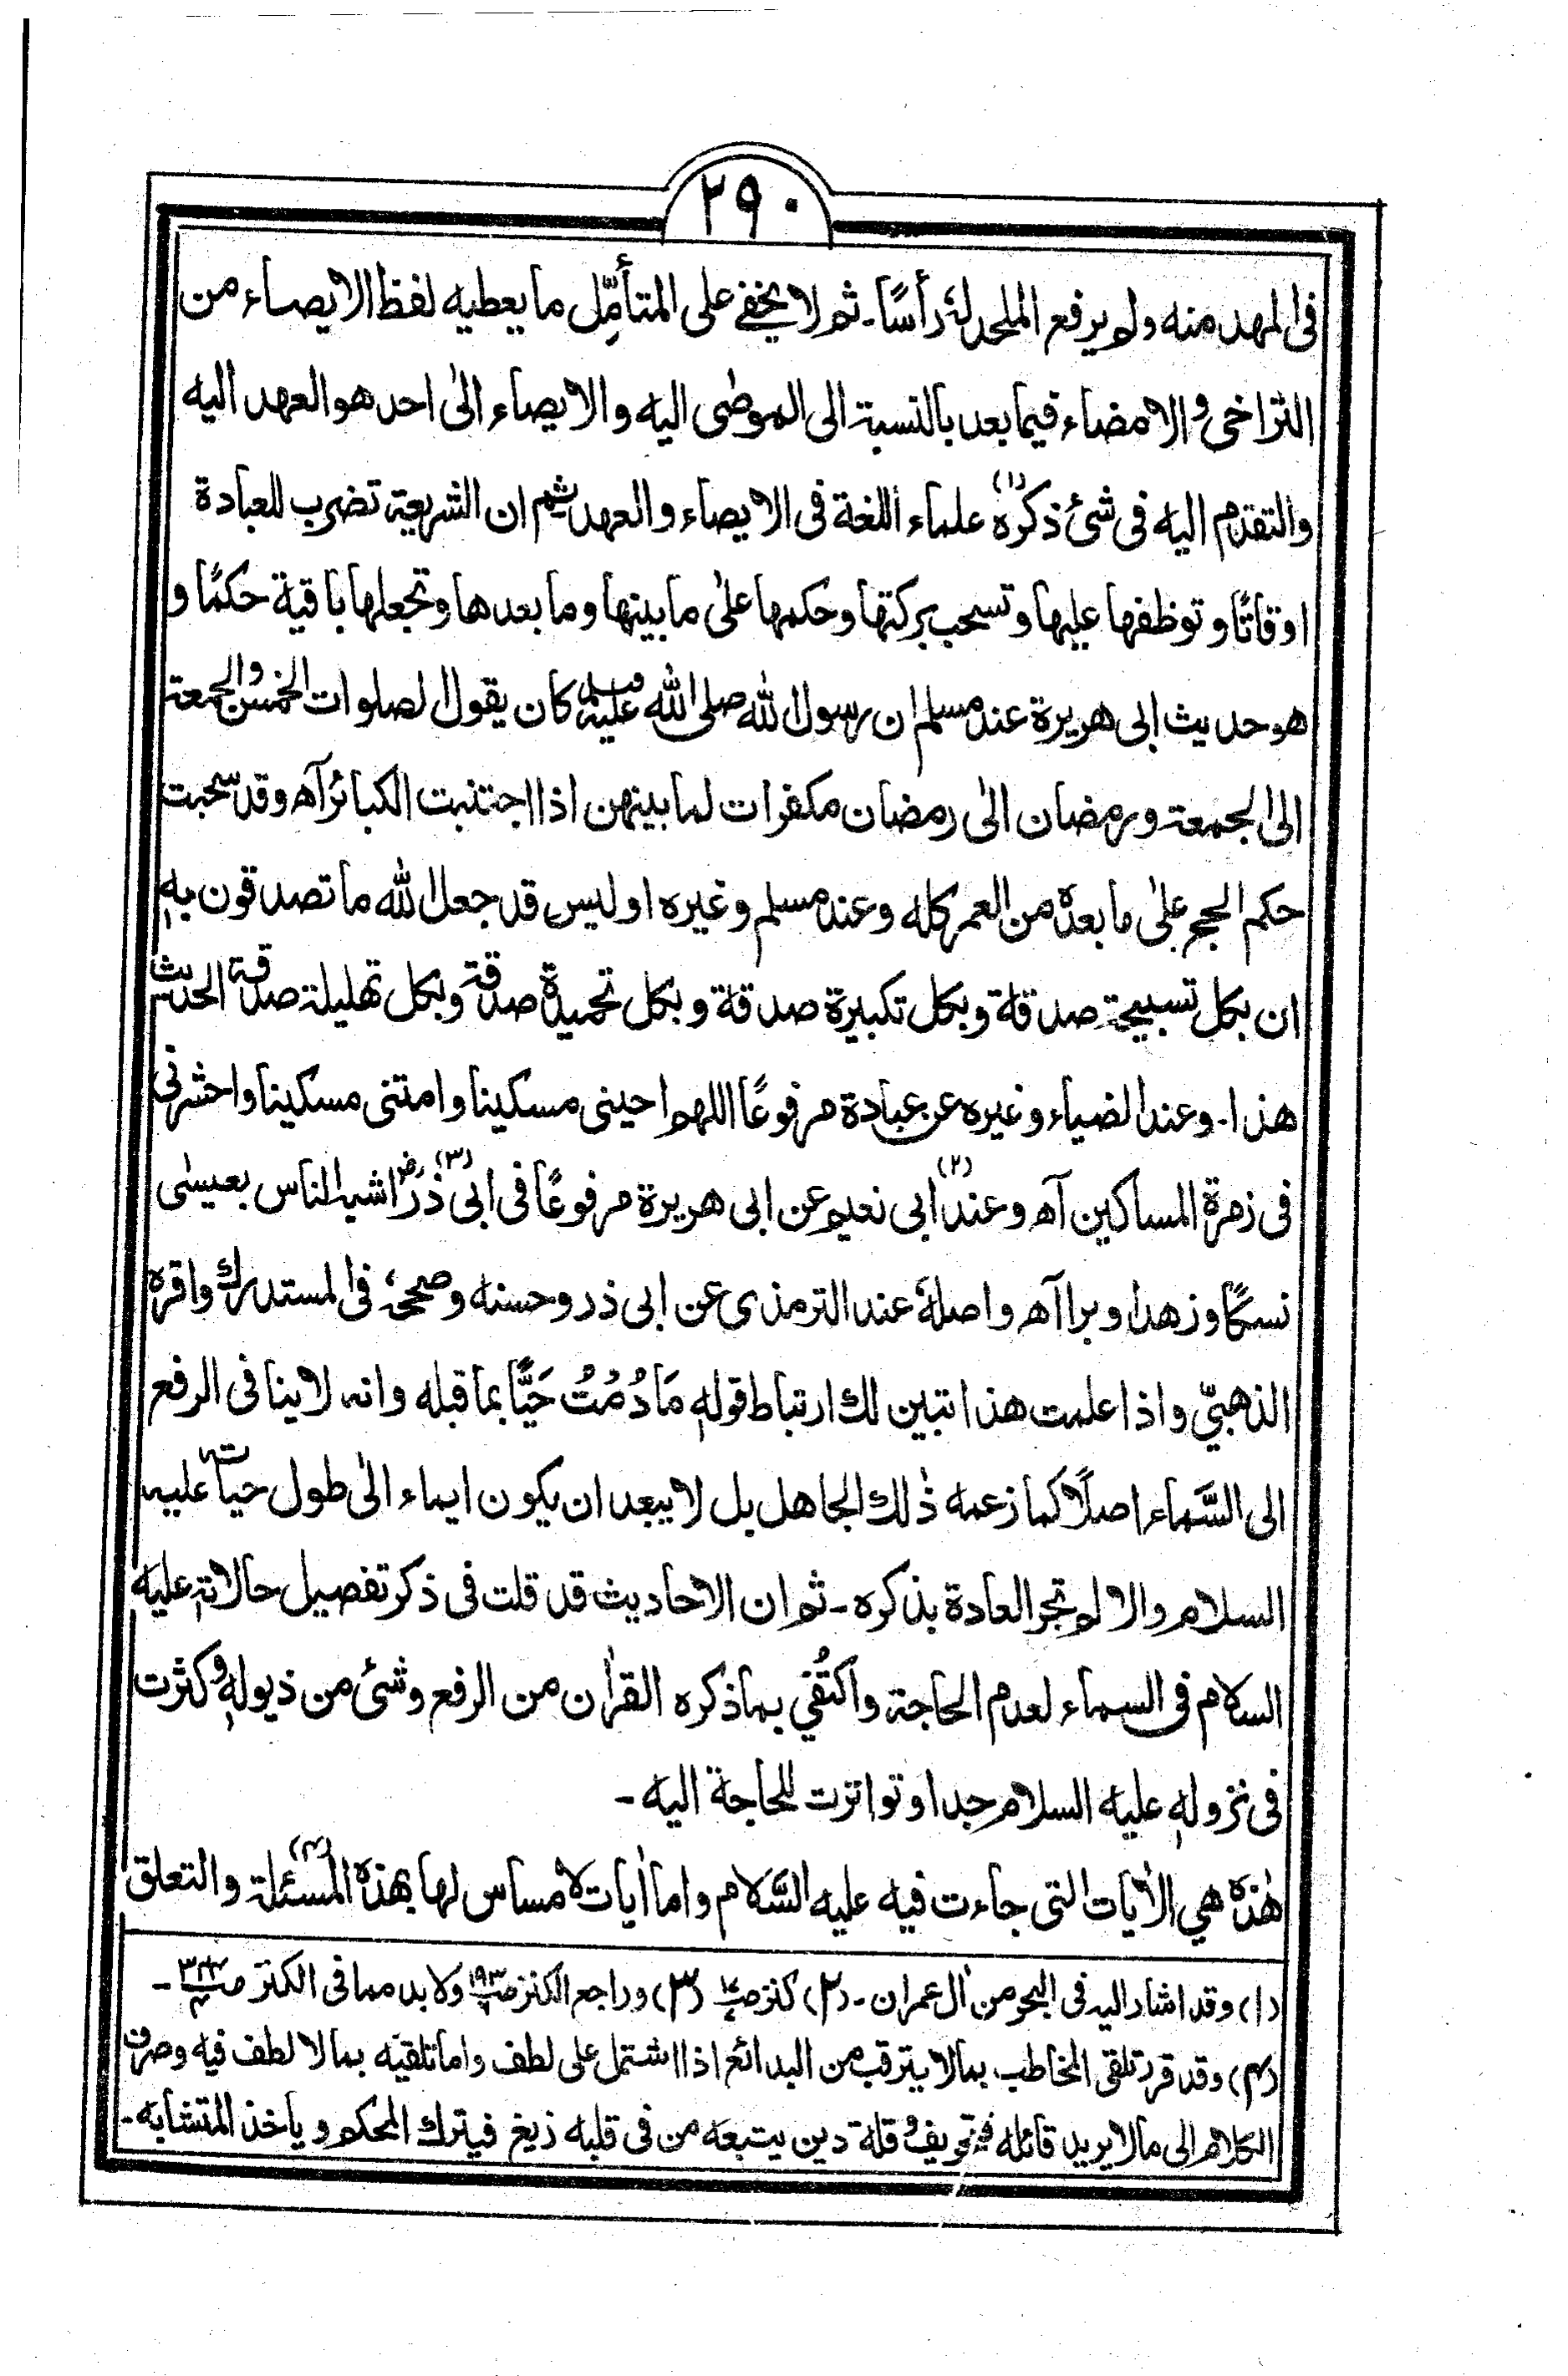 ٢٩٠
فی المهد منه ولم یرفع الملحد لهٗ رأسًا۔ ثم لا یخفے علی المتأمِّل ما یعطیه لفظ الایصاء من
التراخی والامضاء فیما بعد بالنسبة الی الموصٰی الیه والایصاء الیٰ احد هو العهد الیه
والتقدم الیه فی شئ ذکره (١) علماء اللغة فی الایصاء والعهد ثم ان الشریعة تضرب للعبادة
اوقاتًا و توظفها علیها و تسحب برکتها و حکمها علیٰ ما بینها وما بعدها و تجعلها باقیة حکمًا و
هو حدیث ابی هریرة عند مسلم ان رسول الله صلی الله علیه وسلم کان یقول الصلوات الخمس والجمعة
الی الجمعة و رمضان الیٰ رمضان مکفرات لما بینهن اذا اجتنبت الکبائر آه وقد سحبت
حکم الحج علیٰ ما بعدهٗ من العمر کله وعند مسلم وغیره اولیس قد جعل الله ما تصدقون به
ان بکل تسبیحة صدقة وبکل تکبیرة صدقة وبکل تحمیدة صدقة وبکل تهلیلة صدقة الحدیث
هذا۔ وعند الضیاء وغیره عن عبادة مرفوعًا اللهم احینی مسکینا وامتنی مسکینا واحشرنی
فی زمرة المساکین آه وعند (٢) ابی نعیم عن ابی هریرة مرفوعًا فی ابی ذر (٣) رض اشبه الناس بعیسٰی
نسکًا وزهدا وبرا آه واصلهٗ عند الترمذی عن ابی ذر وحسنه وصححهٗ فی المستدرك واقره
الذهبیّ واذا علمت هذا تبین لك ارتباط قوله مَا دُمْتُ حَیًّا بما قبله وانه لا ینافی الرفع
الی السَّماء اصلًا کما زعمه ذٰلك الجاهل بل لا یبعد ان یکون ایماء الیٰ طول حیاته علیه
السلام والا لم تجر العادة بذکره۔ ثم ان الاحادیث قد قلت فی ذکر تفصیل حالاته علیه
السلام فی السماء لعدم الحاجة واکتُفی بما ذکره القرآن من الرفع وشئ من ذیوله وکثرت
فی نزوله علیه السلام جدا وتواترت للحاجة الیه۔
هٰذه هی الاٰیات التی جاءت فیه علیه السَّلام واما اٰیات لا مساس لها بهذه المسئلة (٤) والتعلق
(١) وقد اشار الیه فی البحر من اٰل عمران۔ (٢) کنز (٣) وراجع الکنز ولا بد مما فی الکنز
(٤) وقد قرر تلقی المخاطب بما لا یترقب من البدائع اذا اشتمل علی لطف واما تلقیه بما لا لطف فیه وصرف
الکلام الی ما لا یرید قائله فتحریف وقلة دین یتبعه من فی قلبه زیغ فیترك المحکم ویاخذ المتشابه۔